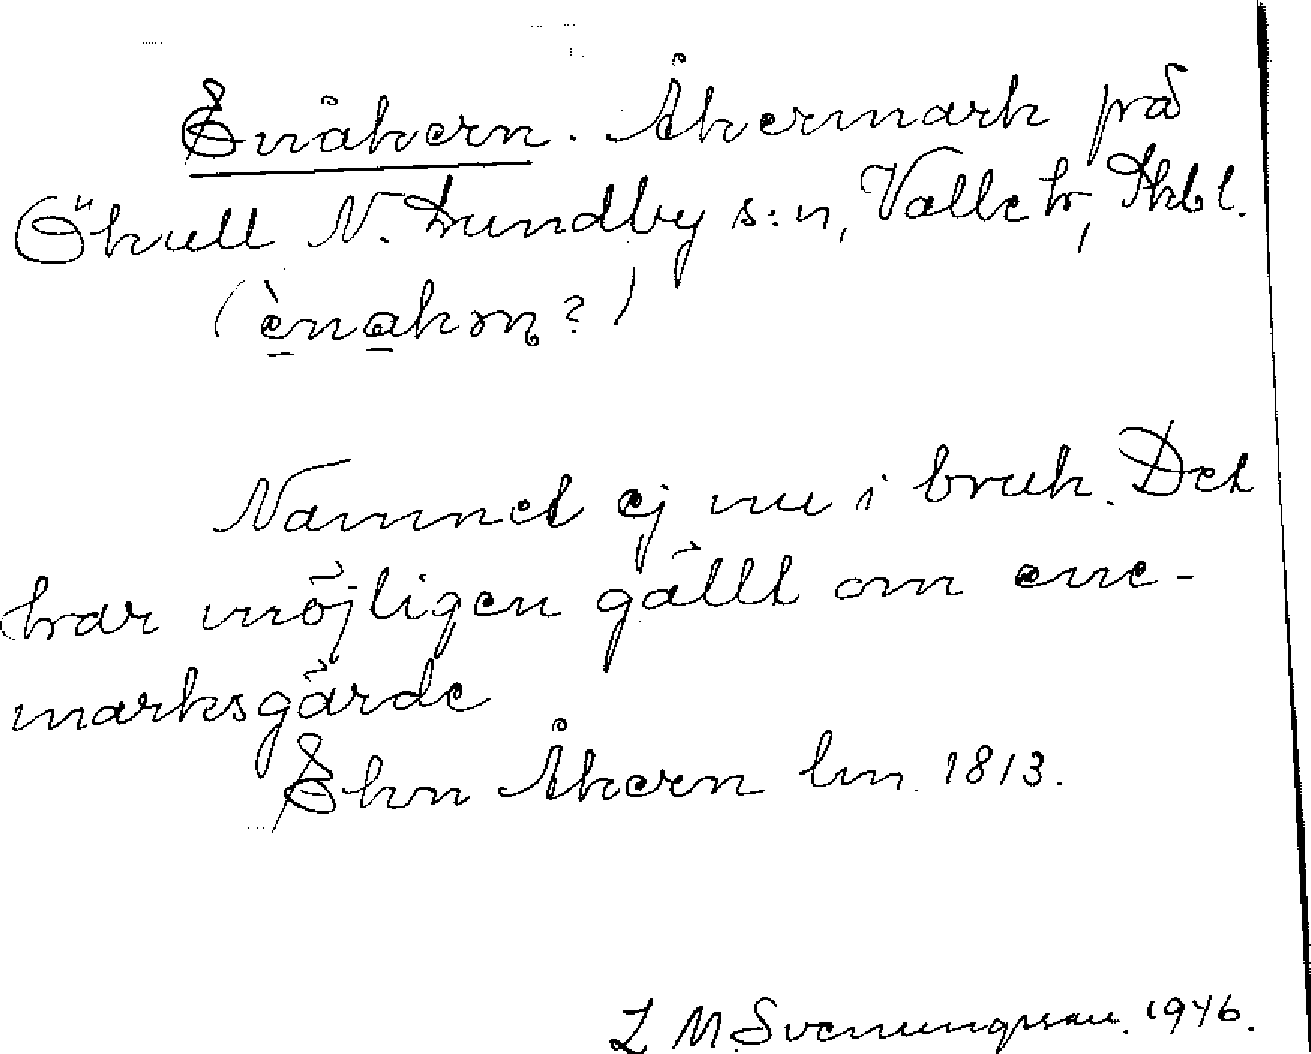 Enåkern. Åkermark på
Ökull N. Lundby s:n, Valle hd, Skbl.
(ènakən?)
Namnet ej nu i bruk. Det
har möjligen gällt om ene-
marksgärde
Ekn Åkern lm. 1813.
L M Svenungsson. 1946.